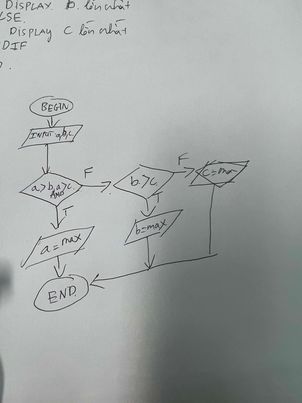 DISPLAY b lớn nhất
LSE.
DISPLAY C lớn nhất
DIF
BEGIN
INPUT a,b,c
F
F
a>b, a>c
AND
b>c
T
T
a=max
b=max
END